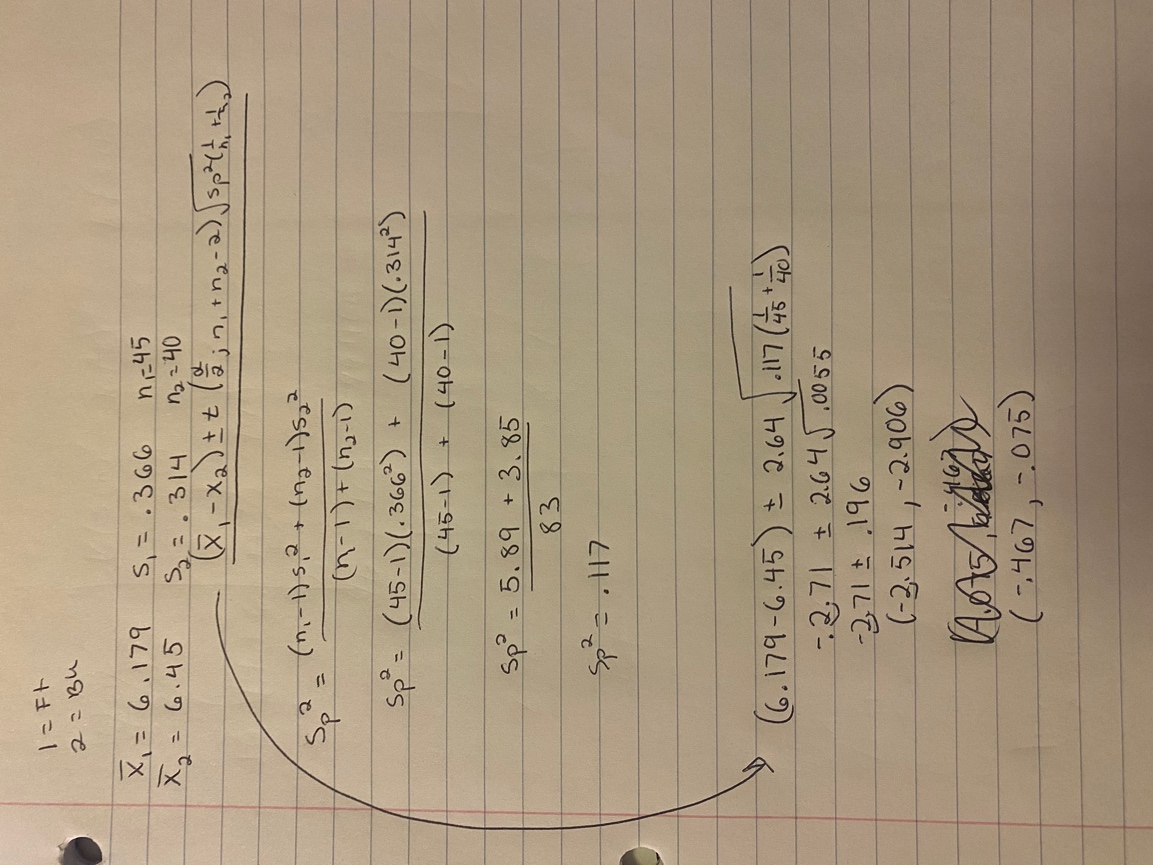 1 = Ft
2 = BU
x̄₁ = 6.179 s₁ = .366 n₁=45
x̄₂ = 6.45 s₂ = .314 n₂=40
(x̄₁ - x₂) ± t (α/2; n₁ + n₂ - 2) √sp²(1/n₁ + 1/n₂)
Sp² = (n₁-1)s₁² + (n₂-1)s₂² / (n-1) + (n₂-1)
Sp² = (45-1)(.366²) + (40-1)(.314²) / (45-1) + (40-1)
Sp² = 5.89 + 3.85 / 83
Sp² = .117
(6.179 - 6.45) ± 2.64 √.117(1/45 + 1/40)
-.271 ± 2.64 √.0055
-.271 ± .196
(-2.514, -2.906)
(-.467, -.075)